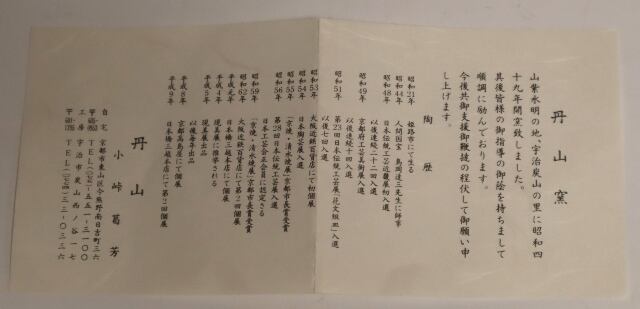 丹山窯
山紫水明の地、宇治炭山の里に昭和四
十九年開窯致しました。
其後皆様の御指導の御蔭を持ちまして
順調に励んでおります。
今後共御支援御鞭撻の程伏して御願い申
し上げます。
陶歴
昭和21年 姫路市にて生る
昭和44年 人間国宝 島岡達三先生に師事
昭和48年 日本伝統工芸近畿展初入選
以後連続二十二回入選
昭和49年 京都府工芸美術展入選
以後連続十四入選
昭和51年 第23回日本伝統工芸展「花文組皿」入選
以後七回入選
昭和53年 大阪近鉄百貨店にて初個展
昭和54年 日本陶芸展入選
昭和55年 「京焼・清水焼展」京都市長賞受賞
昭和56年 第28回日本伝統工芸展入選
昭和59年 日本工芸会正会員に認定さる
「京焼・清水焼展」京都市長賞受賞
昭和62年 大阪近鉄百貨店にて第2回個展
平成元年 日本橋三越本店にて個展
平成4年 現美展に推挙される
平成5年 現美展出品
以後毎年出品
平成8年 京都高島屋にて個展
平成9年 日本橋三越本店にて第2回個展
丹山
小峠葛芳
自宅 京都市東山区今熊野南日吉町三六
TEL(〇七五)五五一-三一〇〇
工房 宇治市炭山西ノ谷一七
TEL(〇七七四)三三-〇三三六